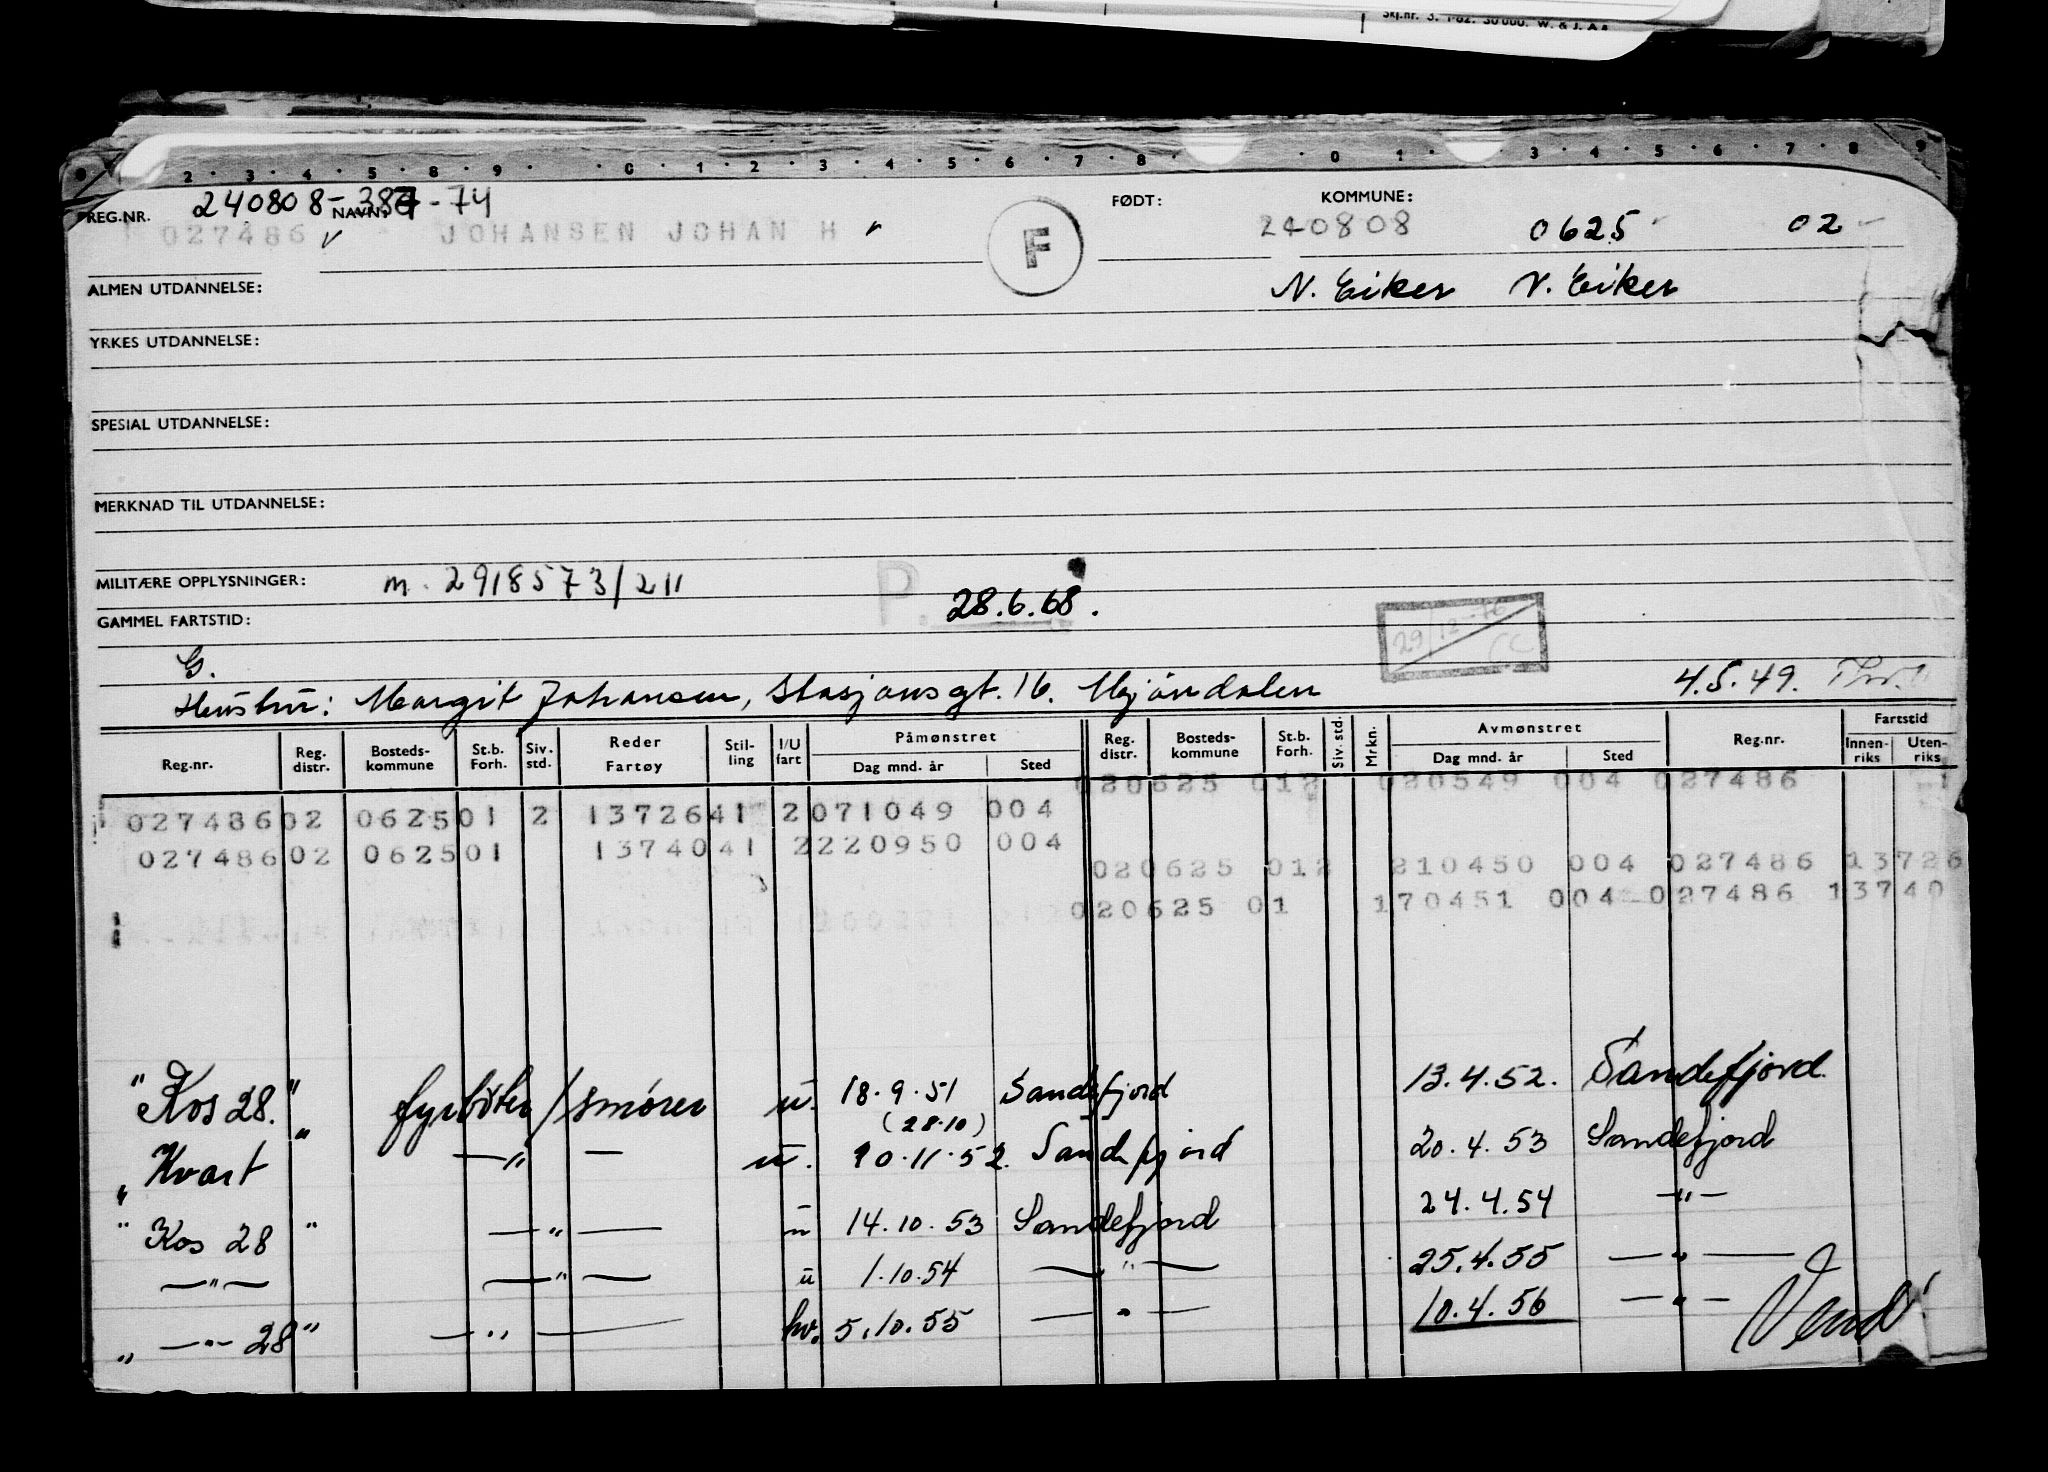 Skj.nr. 3. 1-62. 30 000. W. & J. A s
2 · 3 · 4 · 5 · 8 · 9 · · 0 · 1 · 2 · 3 · 4 · 5 · 6 · 7 · 8 · · 0 · 1 · 3 · 4 · 5 · 6 · 7 · 8 · 9
REG.NR. 240808- -74 NAVN: FØDT: KOMMUNE:
027486 JOHANSEN JOHAN H F 240808 0625 02
ALMEN UTDANNELSE: N. Eiker N. Eiker
YRKES UTDANNELSE:
SPESIAL UTDANNELSE:
MERKNAD TIL UTDANNELSE:
MILITÆRE OPPLYSNINGER: m. 2918573/211 P. 28.6.68.
GAMMEL FARTSTID: 29/12-76
G.
Hustru: Margit Johansen, Stasjonsgt. 16. Mjøndalen 4.5.49.
Reg.nr. Reg. distr. Bosteds- kommune St.b. Forh. Siv. std. Reder Fartøy Stil- ling I/U fart Påmønstret Dag mnd. år Sted Reg. distr. Bosteds- kommune St.b. Forh. Siv. std. Mrkn. Avmønstret Dag mnd. år Sted Reg.nr. Fartstid Innen- riks Uten- riks
020625 012 020549 004 027486
027486 02 0625 01 2 13726 41 2 071049 004
027486 02 0625 01 13740 41 2 220950 004
020625 012 210450 004 027486 13726
020625 01 170451 004 027486 13740
"Kos 28." fyrbøter/smører u. 18.9.51 Sandefjord 13.4.52. Sandefjord
(28.10)
"Kvart" —"— u. 10.11.52. Sandefjord 20.4.53 Sandefjord
"Kos 28" —"— u 14.10.53 Sandefjord 24.4.54 —"—
—"— —"— u 1.10.54 —"— 25.4.55 —"—
"—"— 28" —"— hv. 5.10.55 —"— 10.4.56 —"— Vend!